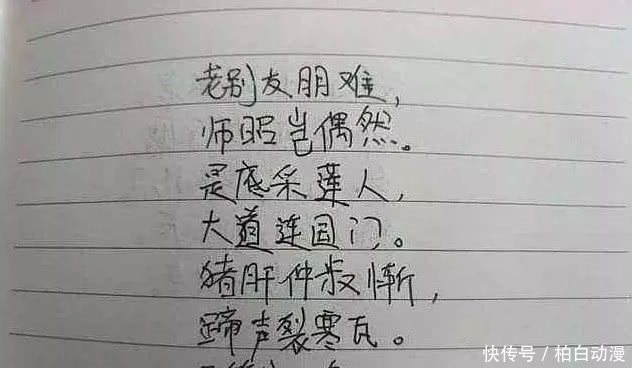 老别友朋难，
师昭岂偶然。
是底采莲人，
大道连国门。
猪肝仲叔惭，
蹄声裂寒瓦。
快传号／柏白动漫